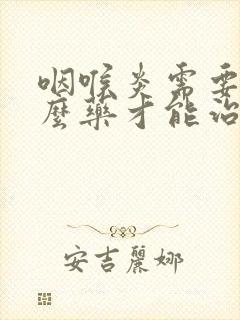 咽喉炎需要
麼藥才能治
安吉麗娜